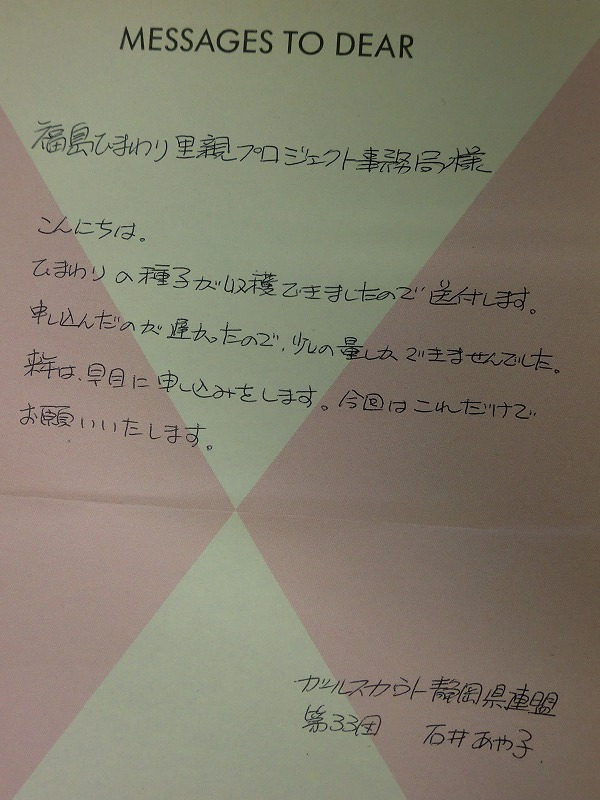 MESSAGES TO DEAR
福島ひまわり里親プロジェクト事務局様
こんにちは。
ひまわりの種子が収穫できましたので送付します。
申し込んだのが遅かったので、少しの量しかできませんでした。
来年は、早目に申し込みをします。今回はこれだけで
お願いいたします。
ガールスカウト静岡県連盟
第33団 石井あや子